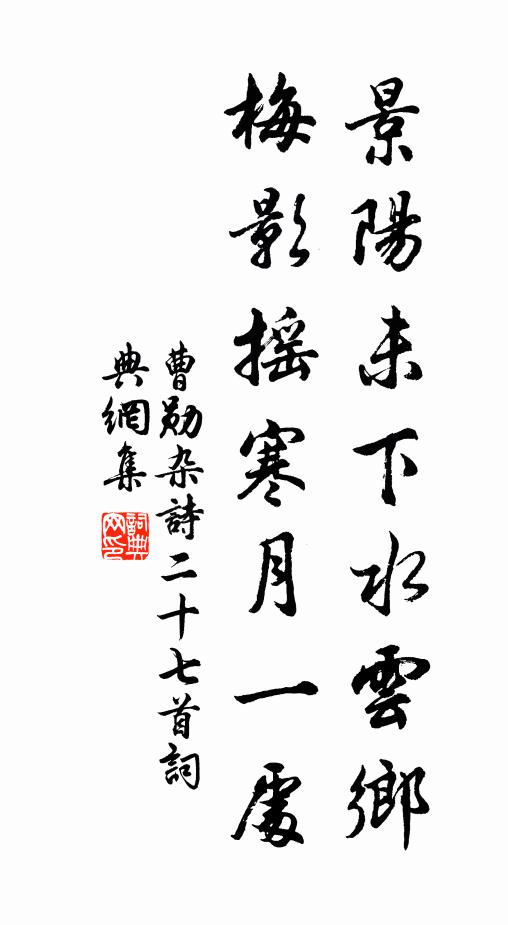 景陽未下水雲鄉
梅影摇寒月一處
曹勛杂詩二十七首詞
典網集
詞典
网印